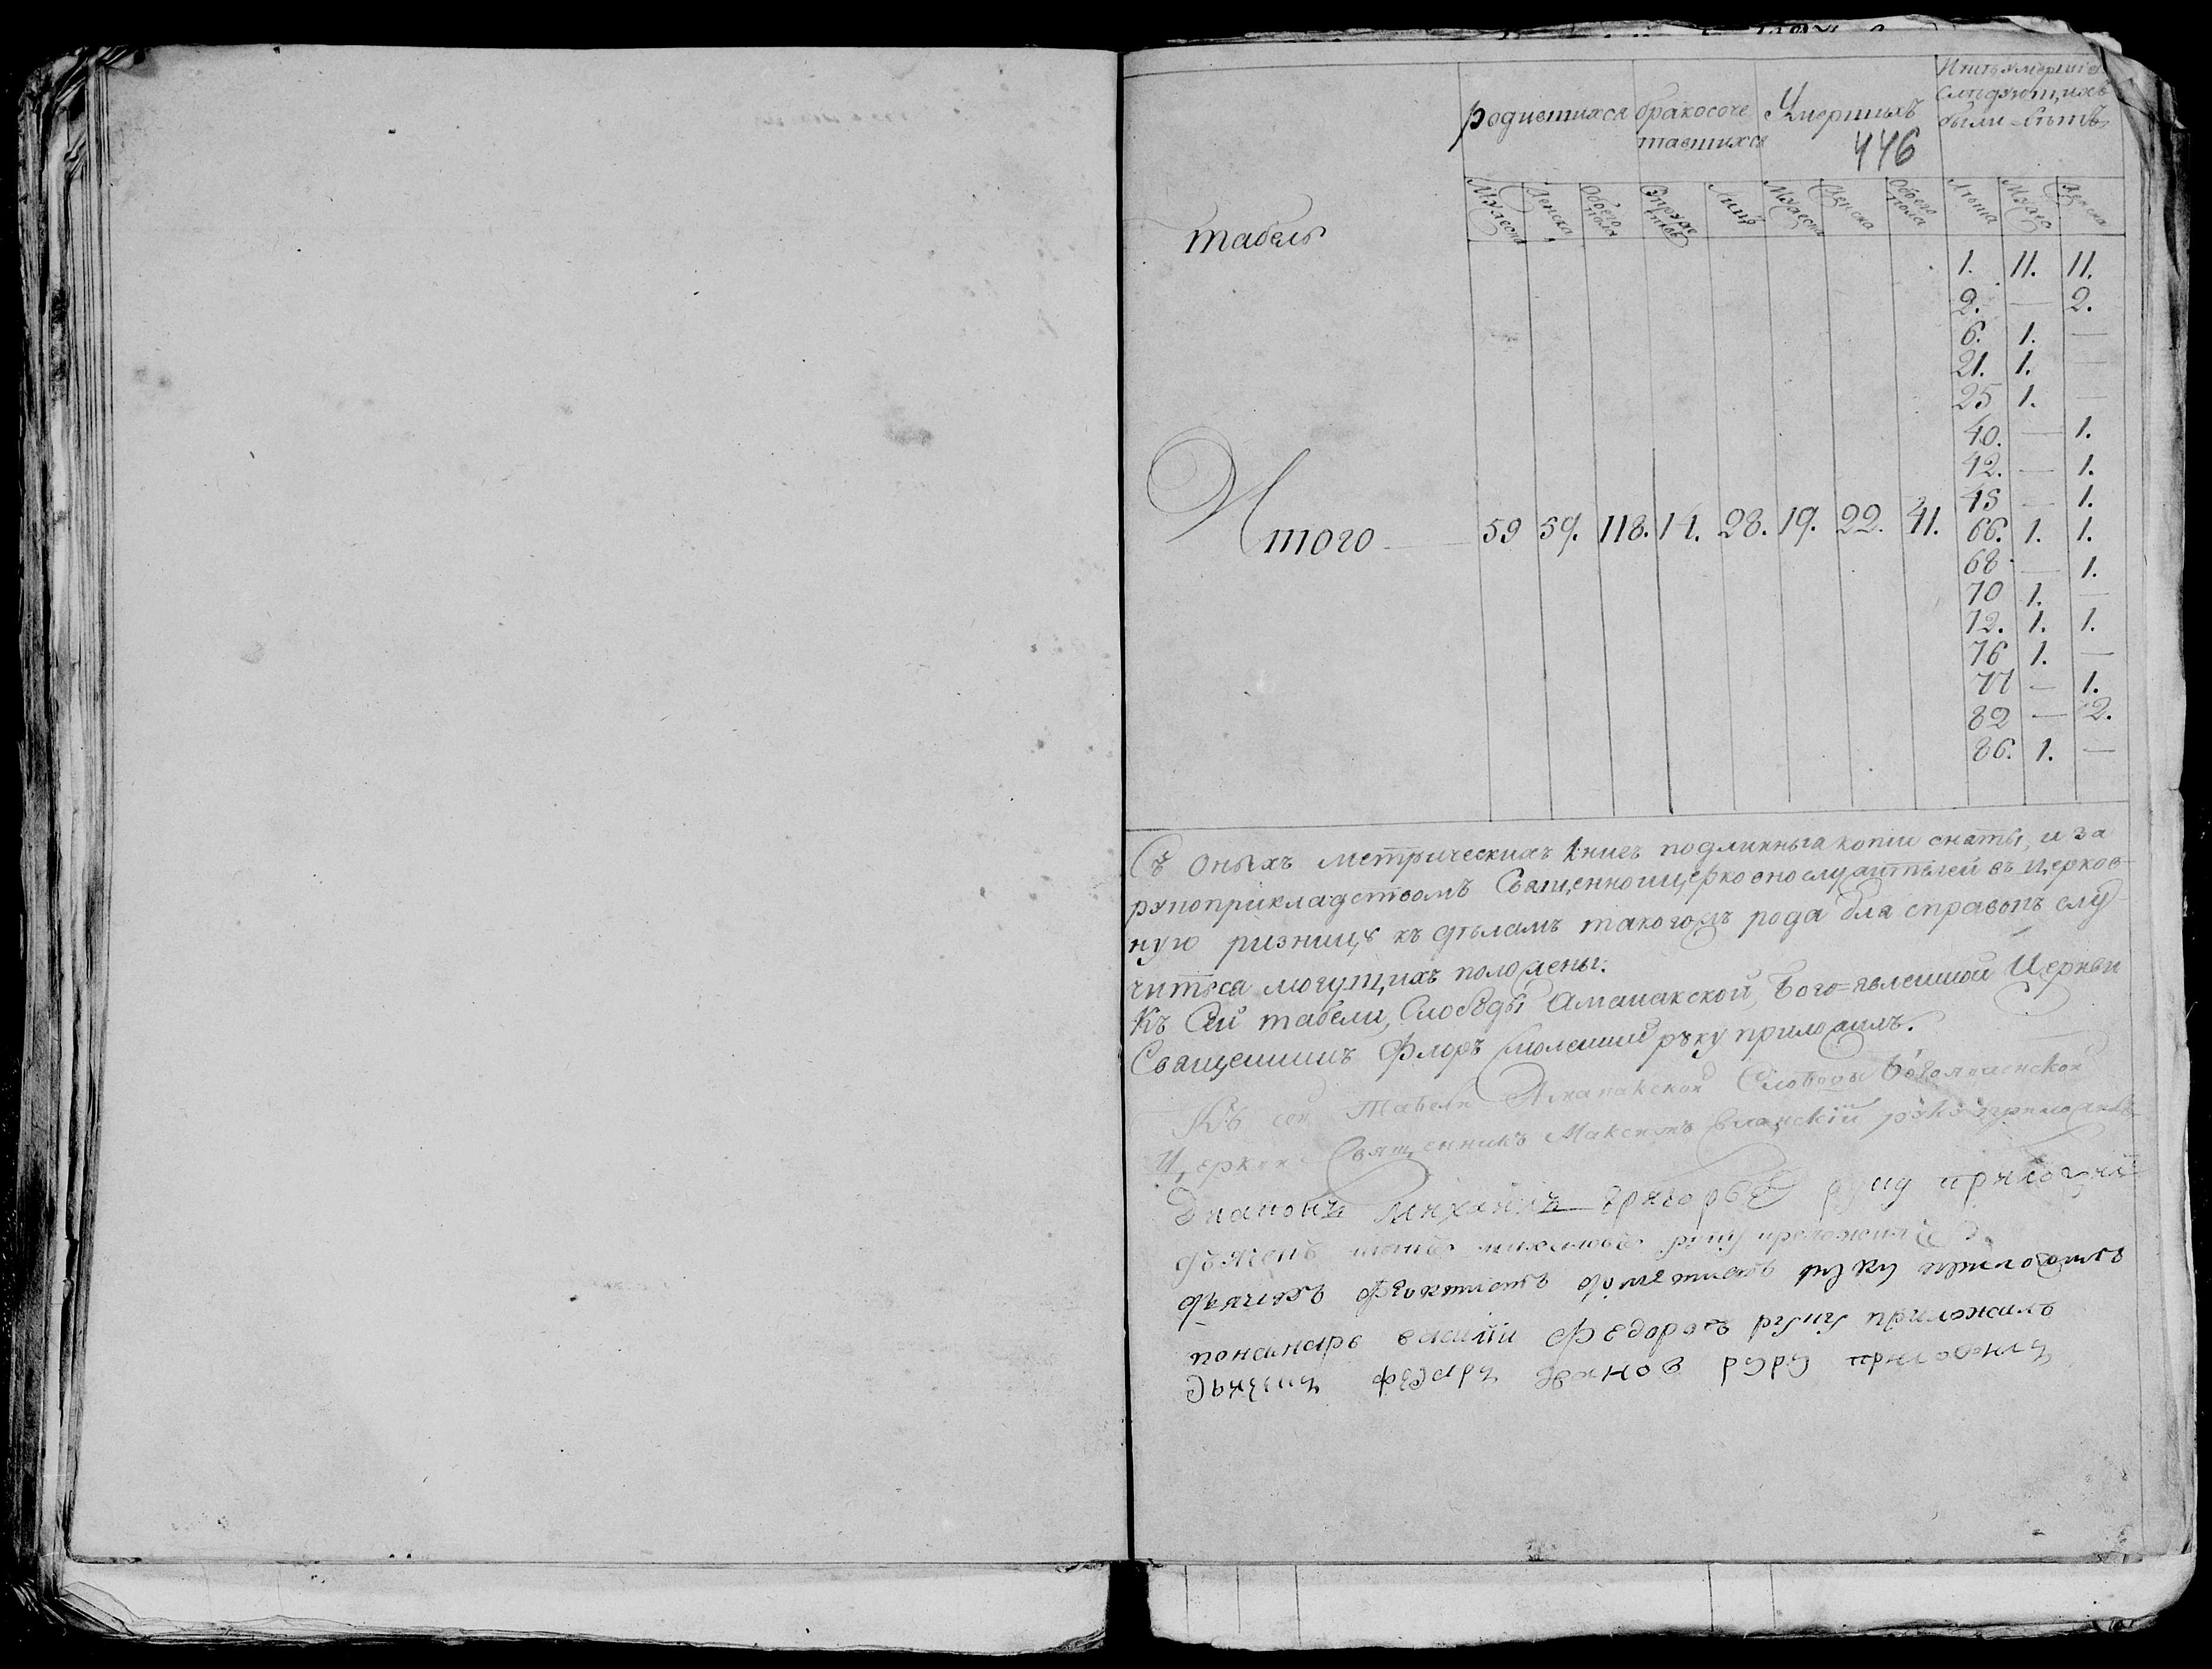 родившихся бракосоче Умершыхъ
тавшихся 446
Изъ умерших
следующихъ
были лѣтъ
табель
Мужеска Женска Обоего пола Супруже Лицъ Мужеска Женска Обоего пола Лѣта Мужес Женска
1. 11. 11.
2. — 2.
6. 1. —
21. 1. —
25 1. —
40. — 1.
42. — 1.
45 — 1.
Итого — 59 59. 118. 14. 28. 19. 22. 41. 66. 1. 1.
68 — 1.
70 1. —
72. 1. 1.
76 1. —
77 — 1.
82 — 2.
86. 1. —
Съ оныхъ метрическихъ книгъ подлинныя копии сняты, и за
рукоприкладствомъ Священноицерковнослужителей въ церков
ную ризницу къ дѣламъ такогожъ рода для справокъ слу
читься могущихъ положены.
Къ Сей табели, Слободы Аманакской, Бого=явленной Церкви
Священникъ Флоръ руку приложилъ.
Къ сей Табели Аманакской Слободы Богоявленской
Церкви Священникъ Максимъ руку приложилъ
Диаконъ Михаилъ Григорьевъ руку приложилъ
руку приложилъ
руку приложилъ
пономарь василий Федоровъ руку приложилъ
руку приложилъ